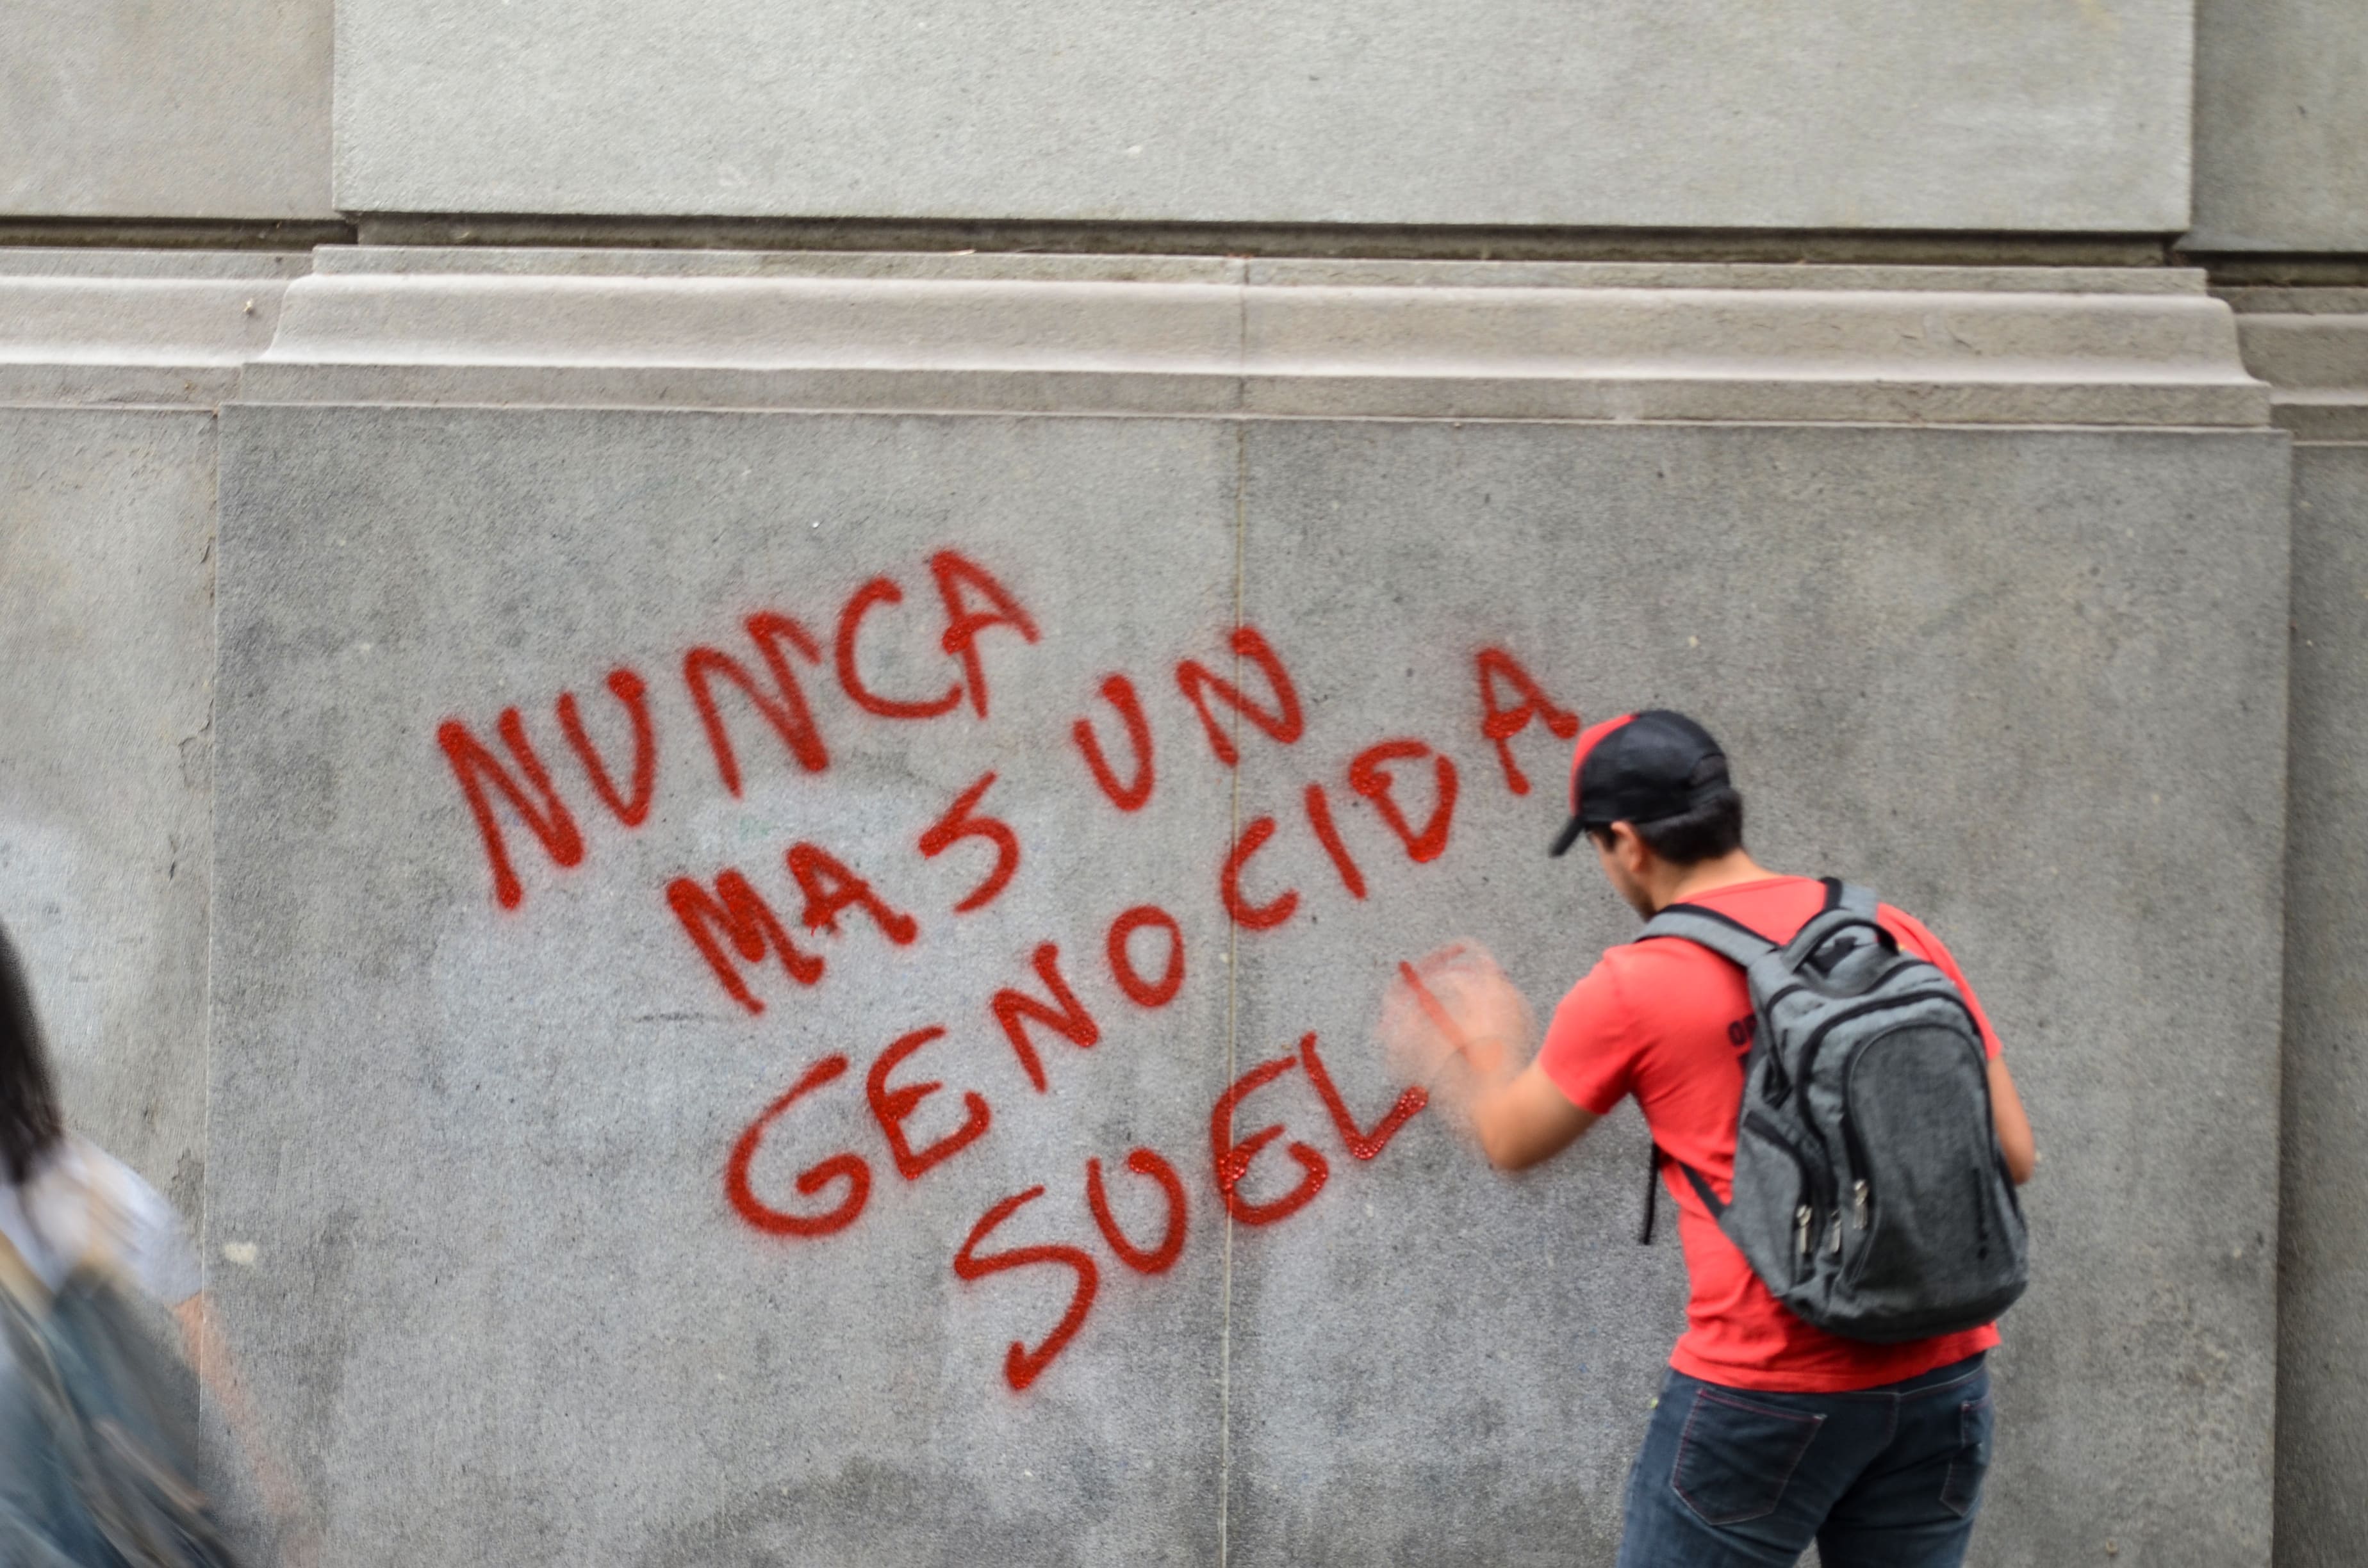 NUNCA
MAS UN
GENOCIDA
SUEL